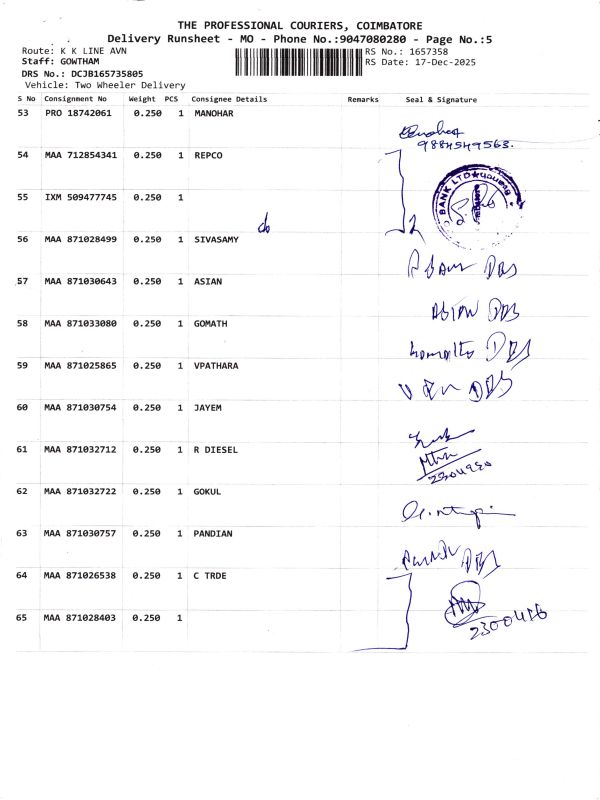 THE PROFESSIONAL COURIERS, COIMBATORE
Delivery Runsheet - MO - Phone No.:9047080280 - Page No.:5
Route: K K LINE AVN RS No.: 1657358
Staff: GOWTHAM RS Date: 17-Dec-2025
DRS No.: DCJB165735805
Vehicle: Two Wheeler Delivery
S No Consignment No Weight PCS Consignee Details Remarks Seal & Signature
53 PRO 18742061 0.250 1 MANOHAR
9884549563.
54 MAA 712854341 0.250 1 REPCO
BANK LTD
55 IXM 509477745 0.250 1
do
2
56 MAA 871028499 0.250 1 SIVASAMY
DBS
57 MAA 871030643 0.250 1 ASIAN
ASIAN DBS
58 MAA 871033080 0.250 1 GOMATH
DBS
59 MAA 871025865 0.250 1 VPATHARA
DBS
60 MAA 871030754 0.250 1 JAYEM
61 MAA 871032712 0.250 1 R DIESEL
62 MAA 871032722 0.250 1 GOKUL
63 MAA 871030757 0.250 1 PANDIAN
DBS
64 MAA 871026538 0.250 1 C TRDE
65 MAA 871028403 0.250 1